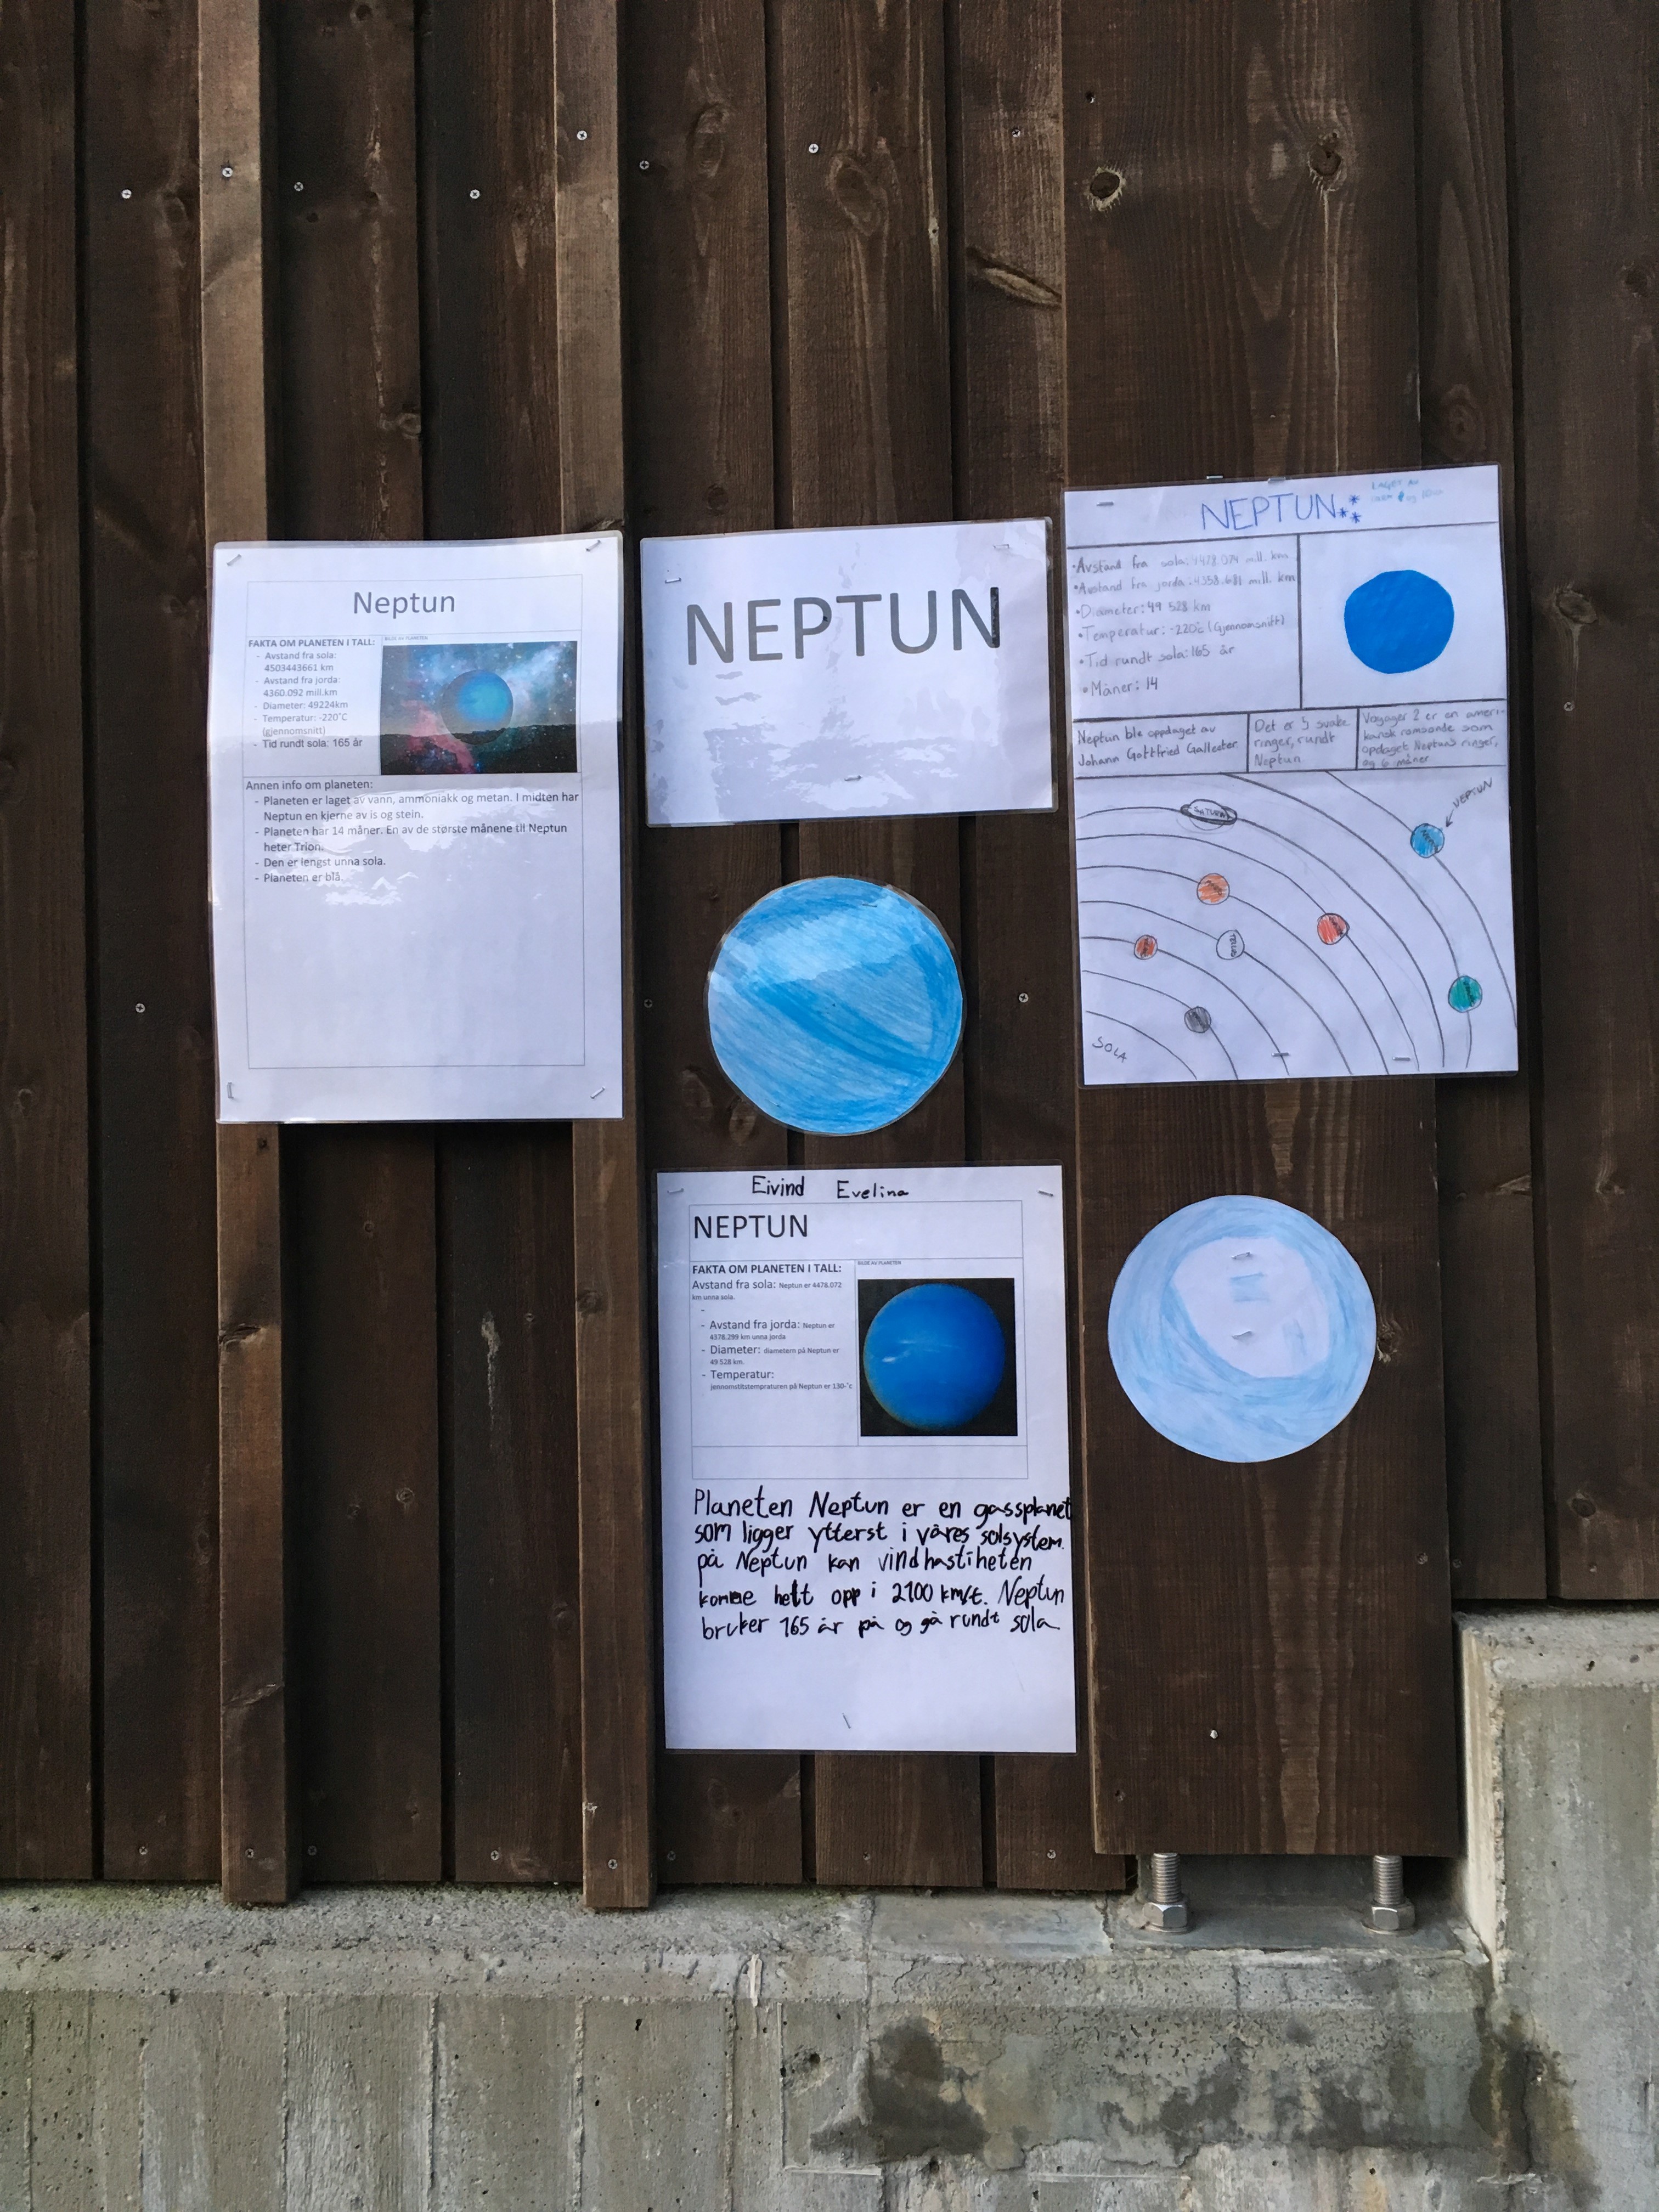 Neptun
FAKTA OM PLANETEN I TALL:
- Avstand fra sola:
4503443661 km
- Avstand fra jorda:
4360.092 mill.km
- Diameter: 49224km
- Temperatur: -220˚C
(gjennomsnitt)
- Tid rundt sola: 165 år
BILDE AV PLANETEN
Annen info om planeten:
- Planeten er laget av vann, ammoniakk og metan. I midten har
Neptun en kjerne av is og stein.
- Planeten har 14 måner. En av de største månene til Neptun
heter Trion.
- Den er lengst unna sola.
- Planeten er blå.
NEPTUN
NEPTUN
LAGET AV
og
•Avstand fra sola: 4478.074 mill. km
•Avstand fra jorda: 4358.681 mill. km
•Diameter: 49 528 km
•Temperatur: -220˚c (Gjennomsnitt)
•Tid rundt sola: 165 år
•Måner: 14
Neptun ble oppdaget av
Johann Gottfried Galleeter
Det er 5 svake
ringer, rundt
Neptun
Voyager 2 er en ameri-
kansk romsonde som
opdaget Neptuns ringer,
og 6 måner
NEPTUN
SATURN
TELLUS
SOLA
Eivind Evelina
NEPTUN
FAKTA OM PLANETEN I TALL:
Avstand fra sola: Neptun er 4478.072
km unna sola.
-
- Avstand fra jorda: Neptun er
4378.299 km unna jorda
- Diameter: diametern på Neptun er
49 528 km.
- Temperatur:
jennomstitstempraturen på Neptun er 130-˚c
BILDE AV PLANETEN
Planeten Neptun er en gassplanet
som ligger ytterst i våres solsystem.
på Neptun kan vindhastiheten
komme helt opp i 2100 km/t. Neptun
bruker 165 år på og gå rundt sola